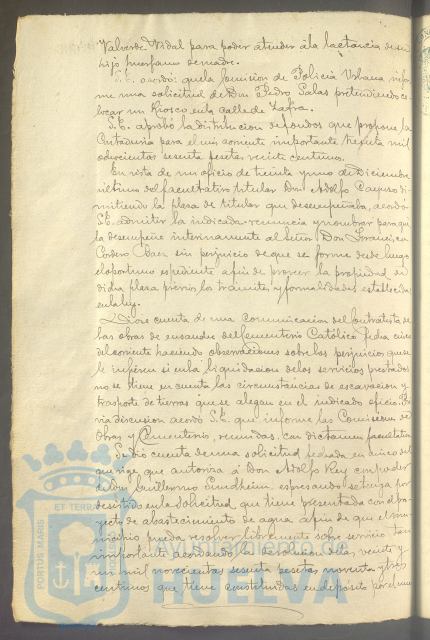 Valverde Vidal para poder atender á la lactancia de su
hijo huerfano de madre.
S.E. acordó: que la Comision de Policía Urbana infor
me una solicitud de Don Pedro Salas pretendiendo co
locar un Kiosco en la calle de Zafra.
S.E. aprobó la distribucion de fondos que propone la
Contaduria para el mes corriente importante treinta mil
ochocientas sesenta pesetas veinte centimos.
En vista de un oficio de treinta y uno de Diciembre
último del facultativo titular Don Adolfo di
mitiendo la plaza de titular que desempeñaba, acordó
S.E. admitir la indicada renuncia y nombrar para que
la desempeñe internamente al Señor Don Francisco
Cordero Baez sin perjuicio de que se forme desde luego
el oportuno espediente afin de proveer la propiedad de
dicha plaza previos los tramites y formalidades establecidas
en la ley.
Dióse cuenta de una comunicacion del contratista de
las obras de ensanche del Cementerio Católico fecha cinco
del corriente haciendo observaciones sobre los perjuicios que se
le infieren si en la liquidacion de los servicios prestados
no se tiene en cuenta las circunstancias de escavacion y
trasporte de tierras que se alegan en el indicado oficio. Pre
via discusion acordó S.E. que informe las Comisiones de
Obras y Cementerio, reunidas, con dictamen facultativo
Se dió cuenta de una solicitud fechada en cinco del
que rige que autoriza á Don Adolfo Rey como apoderado
de Don Guillermo Sundheim espresando se tenga por
desistido en la solicitud que tiene presentada con el pro
yecto de abastecimiento de agua afin de que el mu
nicipio pueda resolver libremente sobre servicio tan
importante acordando la devolucion de las veinte y
un mil novecientas sesenta pesetas noventa y tres
centimos que tiene constituidas en deposito por el uno
PORTUS MARIS ET TERRAE
Ayuntamiento de
HUELVA